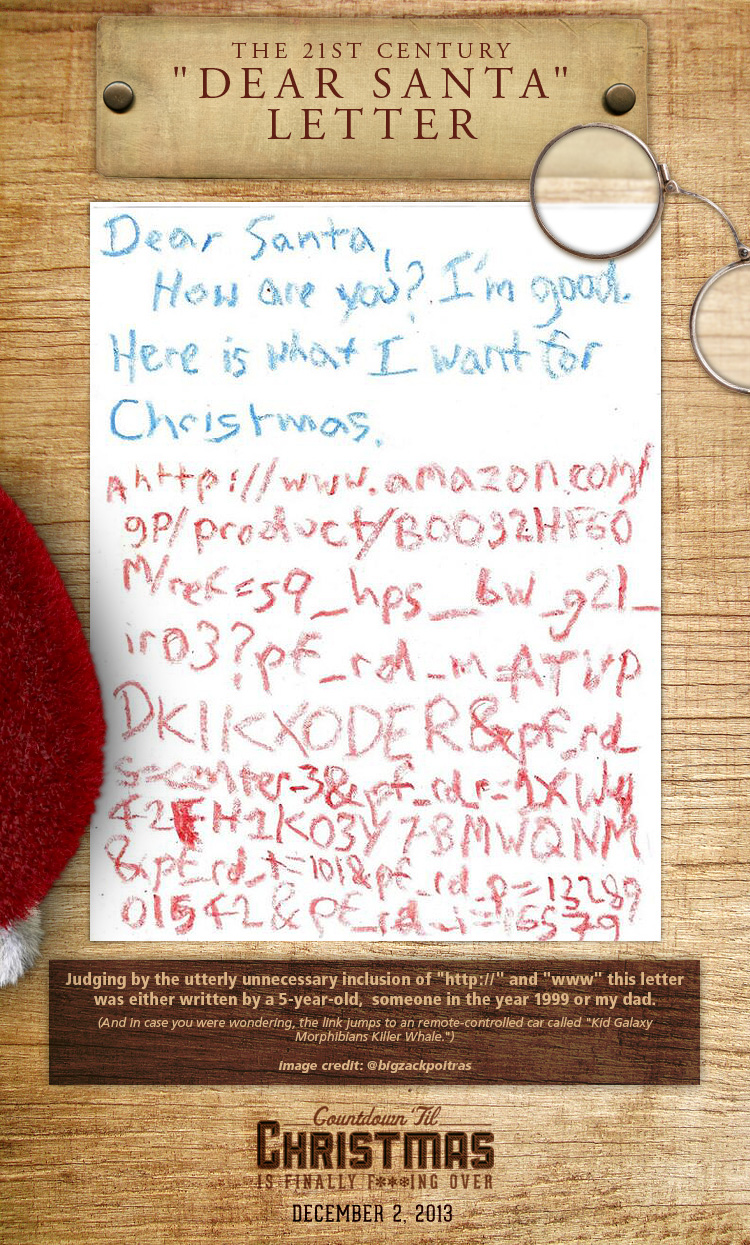 THE 21ST CENTURY
"DEAR SANTA"
LETTER
Dear Santa,
How are you? I'm good.
Here is what I want for
Christmas.
http://www.amazon.com/
gp/product/B0032HF60
M/ref=s9_hps_bw_g21_
ir03?pf_rd_m=ATVP
DKIKX0DER&pf_rd_
s=center-3&pf_rd_r=1XW4
42FH1K03Y7BMWQNM
&pf_rd_t=101&pf_rd_p=13289
01542&pf_rd_i=16579
Judging by the utterly unnecessary inclusion of "http://" and "www" this letter
was either written by a 5-year-old, someone in the year 1999 or my dad.
(And in case you were wondering, the link jumps to an remote-controlled car called "Kid Galaxy
Morphibians Killer Whale.")
Image credit: @bigzackpoitras
Countdown 'Til
CHRISTMAS
IS FINALLY F***ING OVER
DECEMBER 2, 2013